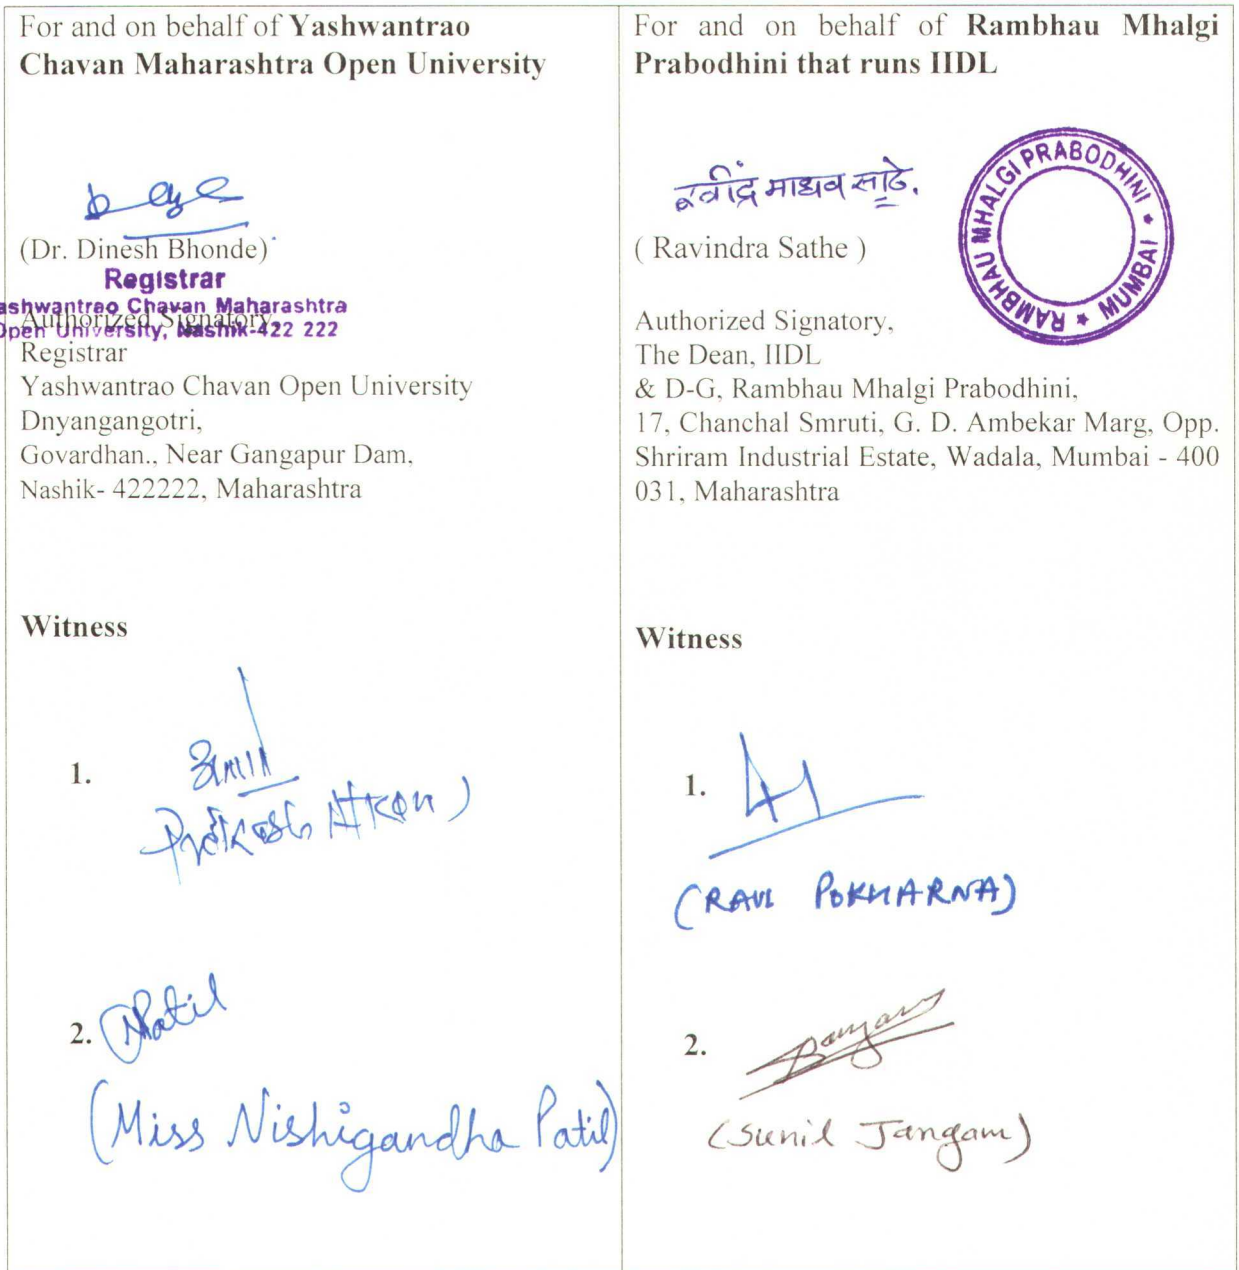 For and on behalf of Yashwantrao
Chavan Maharashtra Open University
(Dr. Dinesh Bhonde)
Registrar
ashwantrao Chavan Maharashtra
Open University, Nashik-422 222
Authorized Signatory,
Registrar
Yashwantrao Chavan Open University
Dnyangangotri,
Govardhan., Near Gangapur Dam,
Nashik- 422222, Maharashtra
Witness
1.
Prakash
2. Patil
(Miss Nishigandha Patil)
For and on behalf of Rambhau Mhalgi
Prabodhini that runs IIDL
रवींद्र माधव साठे.
RAMBHAU MHALGI PRABODHINI * MUMBAI *
( Ravindra Sathe )
Authorized Signatory,
The Dean, IIDL
& D-G, Rambhau Mhalgi Prabodhini,
17, Chanchal Smruti, G. D. Ambekar Marg, Opp.
Shriram Industrial Estate, Wadala, Mumbai - 400
031, Maharashtra
Witness
1.
(RAVI POKHARNA)
2.
(Sunil Jangam)